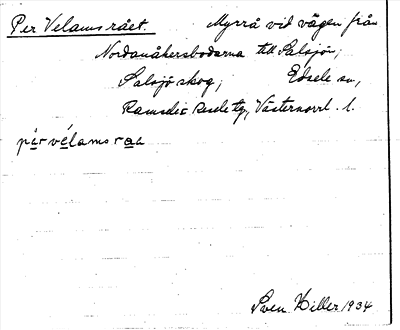 Per Velams rået. Myrrå vid vägen från
Nordanåkersbodarna till Salsjön;
Salsjö skog; Edsele sn,
Ramsele tg, Västernorrl. l.
pärvélamsraa
Sven Hiller 1934